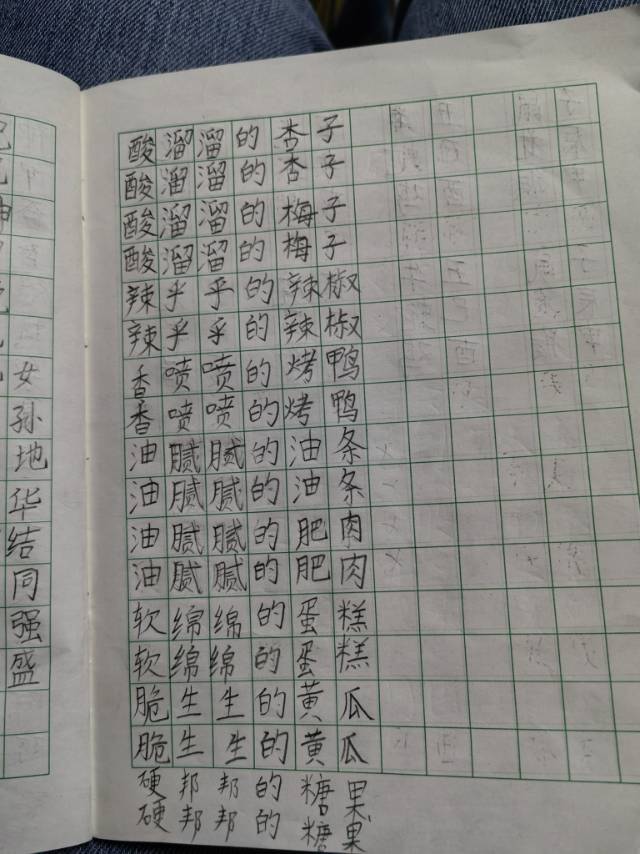 女
孙
地
华
结
同
强
盛
酸溜溜的杏子
酸溜溜的杏子
酸溜溜的梅子
酸溜溜的梅子
辣乎乎的辣椒
辣乎乎的辣椒
香喷喷的烤鸭
香喷喷的烤鸭
油腻腻的油条
油腻腻的油条
油腻腻的肥肉
油腻腻的肥肉
软绵绵的蛋糕
软绵绵的蛋糕
脆生生的黄瓜
脆生生的黄瓜
硬邦邦的糖果
硬邦邦的糖果